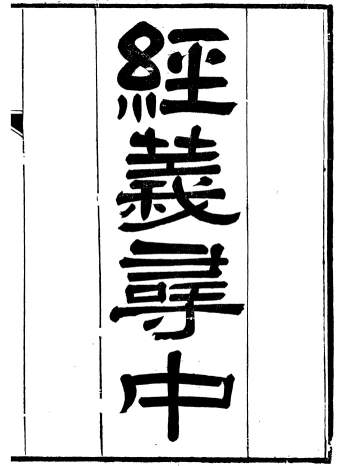 經義尋中